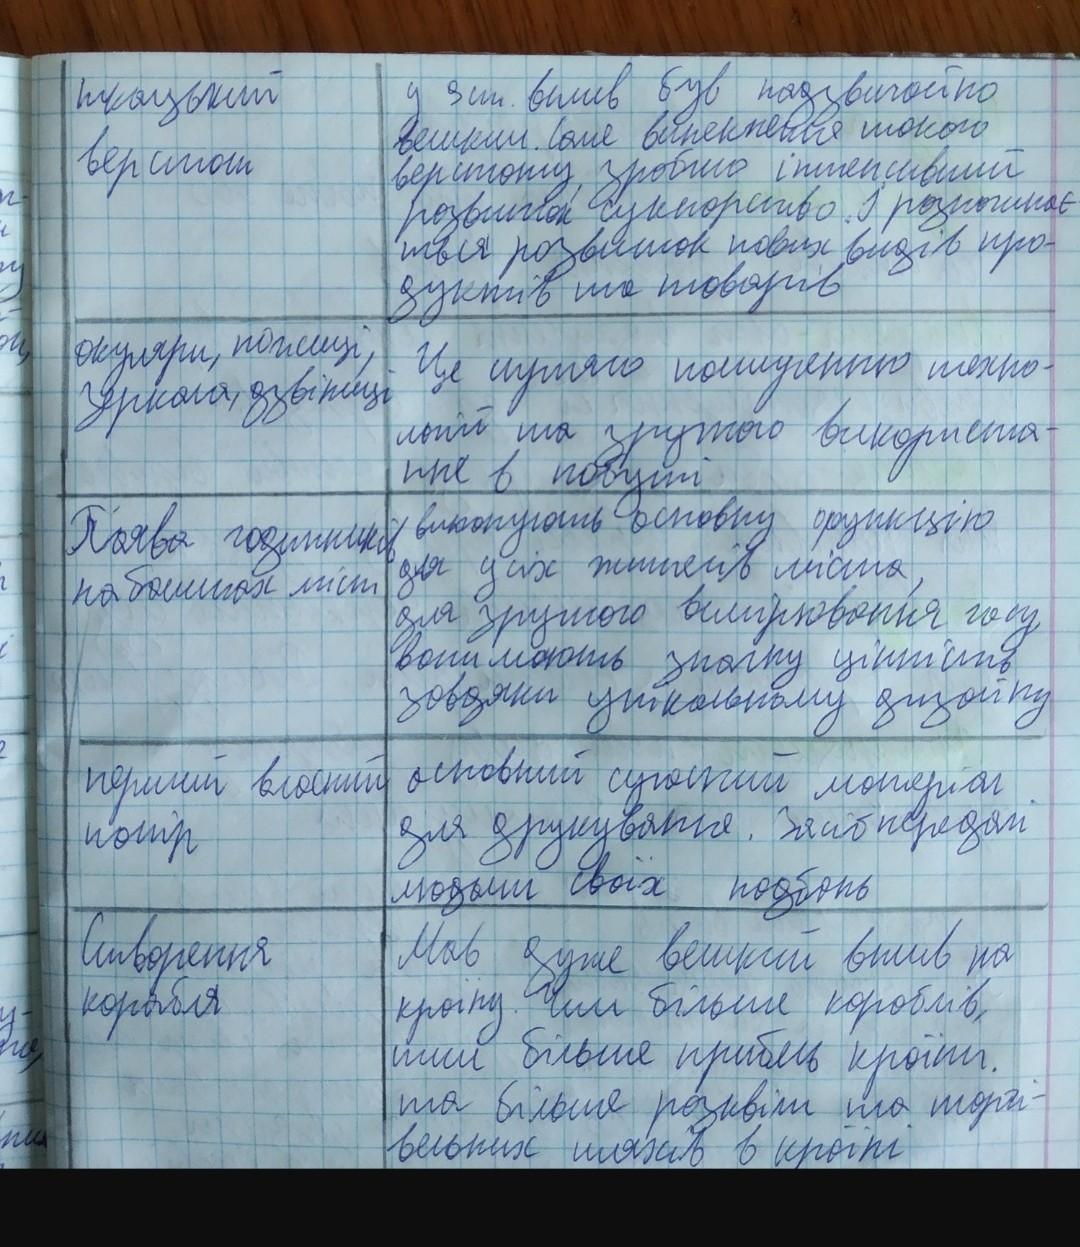 ткацький
верстат
у зат. вплив був надзвичайно
великим. Саме винекнення такого
верстату, зробило інтенсивний
розвиток сукнарства. І розпочинає
ться розвиток нових видів про-
дуктів та товарів
окуляри, ножиці,
зеркала, дзвіниці
Це сутяго поширенню техно-
логій та зручного використа-
ння в побуті
Поява годинників
на баштах міст
виконують основну функцію
для усіх жителів міста,
для зручного вимірювання часу
вони мають значну цінність
завдяки унікальному дизайну
перший власний
папір
основний сучасний матеріал
для друкування. Засіб передачі
людьми своїх надбань
Створення
корабля
Мав дуже великий вплив на
країну. Чим більше кораблів,
тим більше прибуль країни.
та більше розквіт та торгі-
вельних шляхів в країні